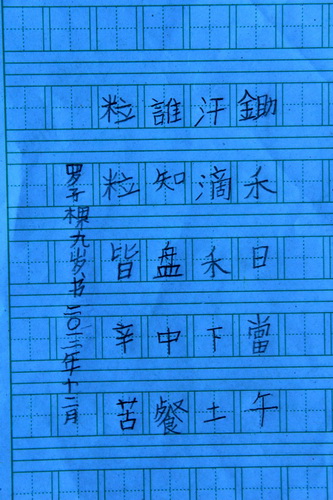 鋤禾日當午
汗滴禾下土
誰知盘中餐
粒粒皆辛苦
罗子棵九岁书二〇一二年十二月